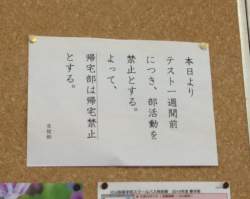 本日より
テスト一週間前
につき、部活動を
禁止とする。
よって、
帰宅部は帰宅禁止
とする。